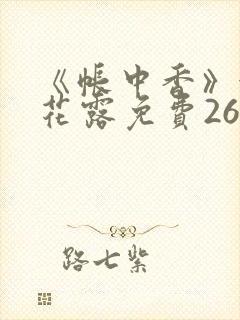 《帳中香》
花露免費26
路七紫